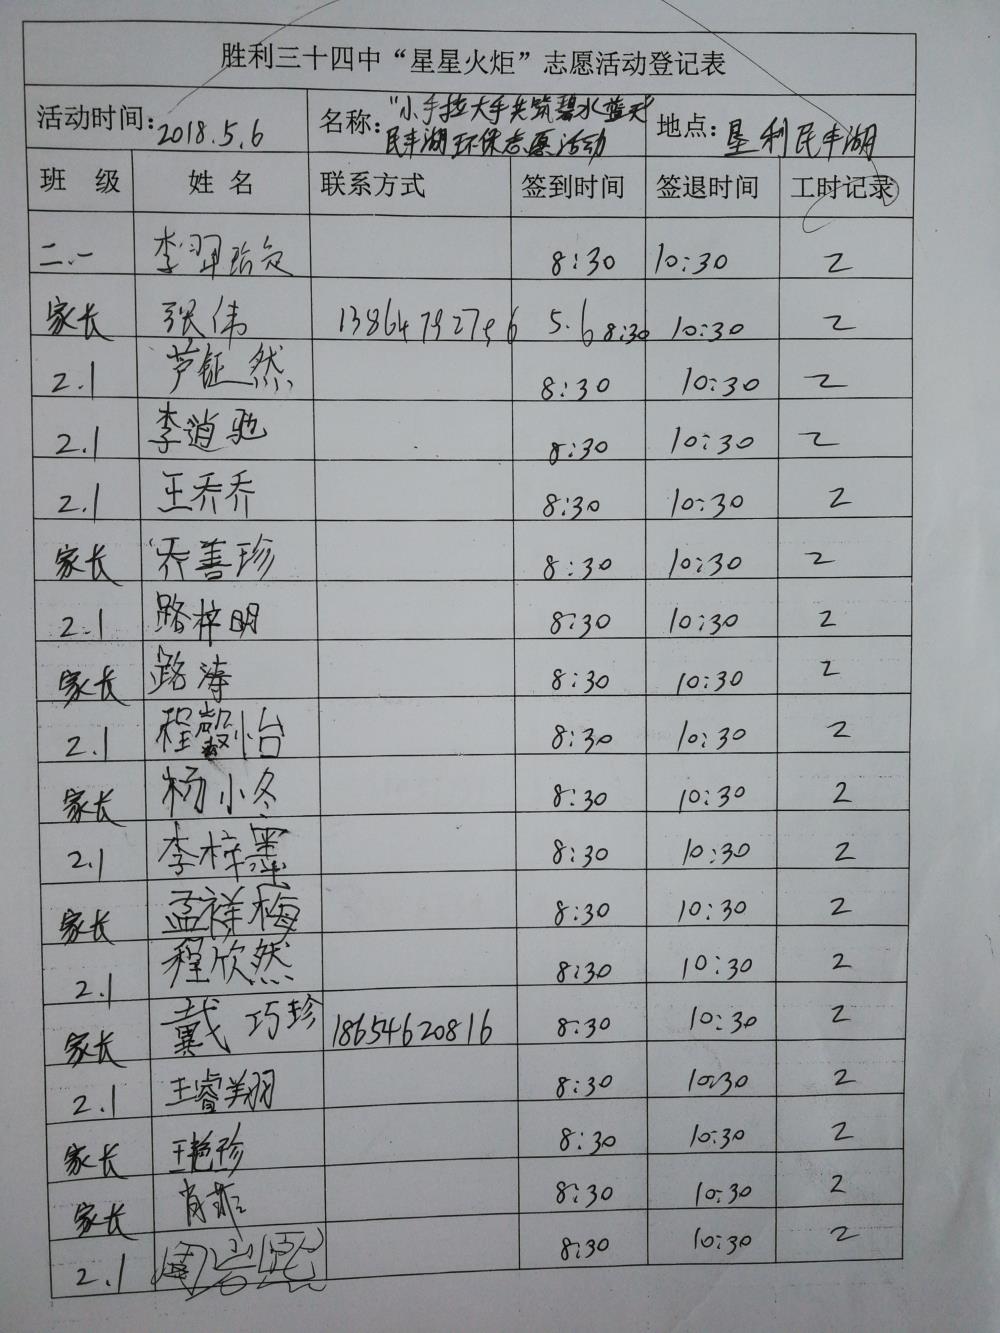 胜利三十四中“星星火炬”志愿活动登记表
活动时间：2018.5.6 名称：“小手拉大手共筑碧水蓝天 地点：垦利民丰湖
民丰湖环保志愿活动
班 级 姓 名 联系方式 签到时间 签退时间 工时记录
二.一 李 8:30 10:30 2
家长 张伟 5.6 8:30 10:30 2
2.1 芦钲然 8:30 10:30 2
2.1 李逍驰 8:30 10:30 2
2.1 王乔乔 8:30 10:30 2
家长 乔善珍 8:30 10:30 2
2.1 路梓明 8:30 10:30 2
家长 路涛 8:30 10:30 2
2.1 程馨怡 8:30 10:30 2
家长 杨小冬 8:30 10:30 2
2.1 李梓墨 8:30 10:30 2
家长 孟祥梅 8:30 10:30 2
2.1 程欣然 8:30 10:30 2
家长 戴巧珍 18654620816 8:30 10:30 2
2.1 王睿美羽 8:30 10:30 2
家长 王艳珍 8:30 10:30 2
家长 肖菲 8:30 10:30 2
2.1 8:30 10:30 2